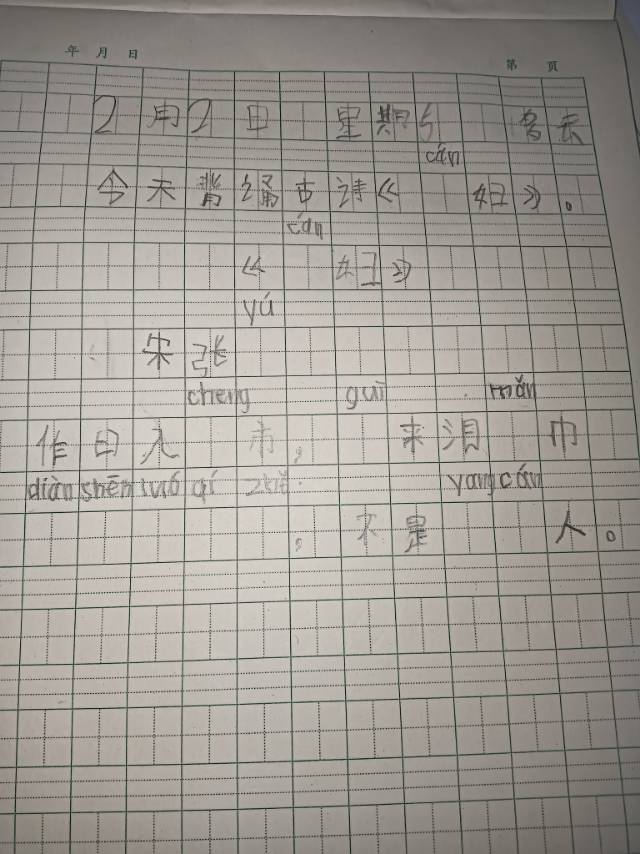 年 月 日 第 页
2月2日 星期
cán
今天背诵古诗《 妇》。
cán
《 妇》
yú
宋 张
cheng gui mǎn
作日入 市， 来泪 巾
shēn luó qǐ zhě yang cán
。不是 人。